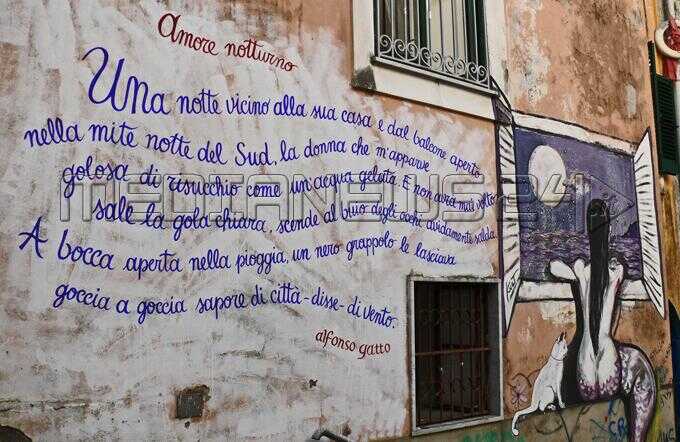 Amore notturno
Una notte vicino alla sua casa e dal balcone aperto
nella mite notte del Sud, la donna che m'apparve
golosa di risucchio come un'acqua gelata. E non avrà mai volto
sale la gola chiara, scende al buio degli occhi avidamente salda.
A bocca aperta nella pioggia, un nero grappolo le lasciava
goccia a goccia sapore di città - disse - di vento.
alfonso gatto
MEDIANEWS24